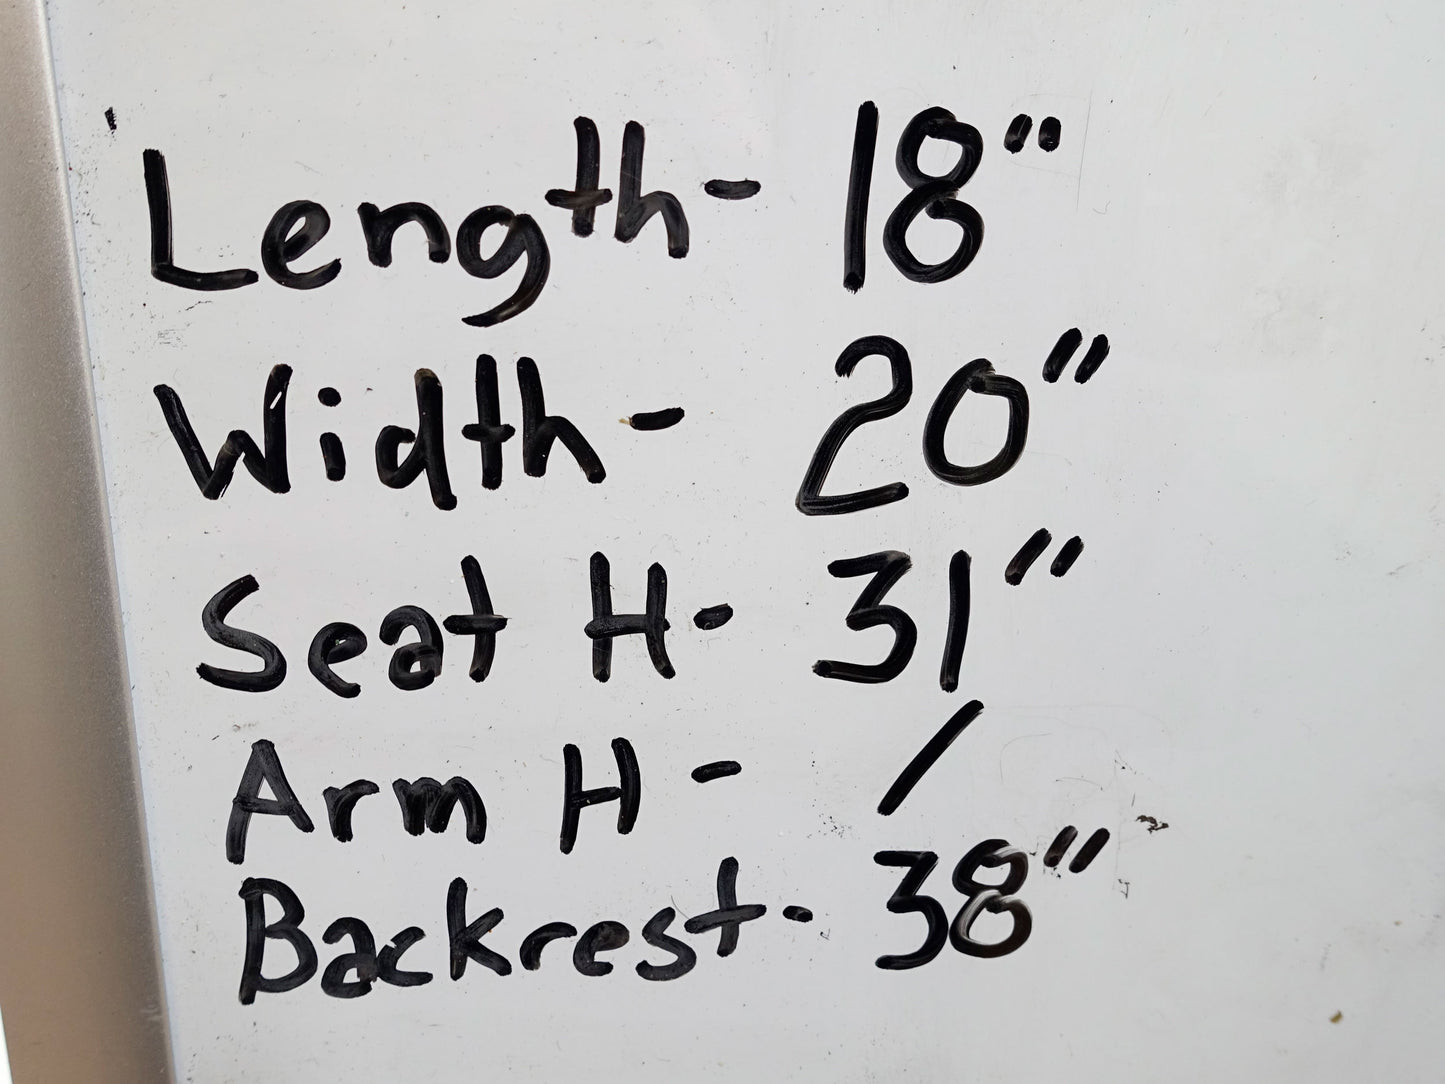 Length- 18"
Width- 20"
Seat H- 31"
Arm H- /
Backrest- 38"